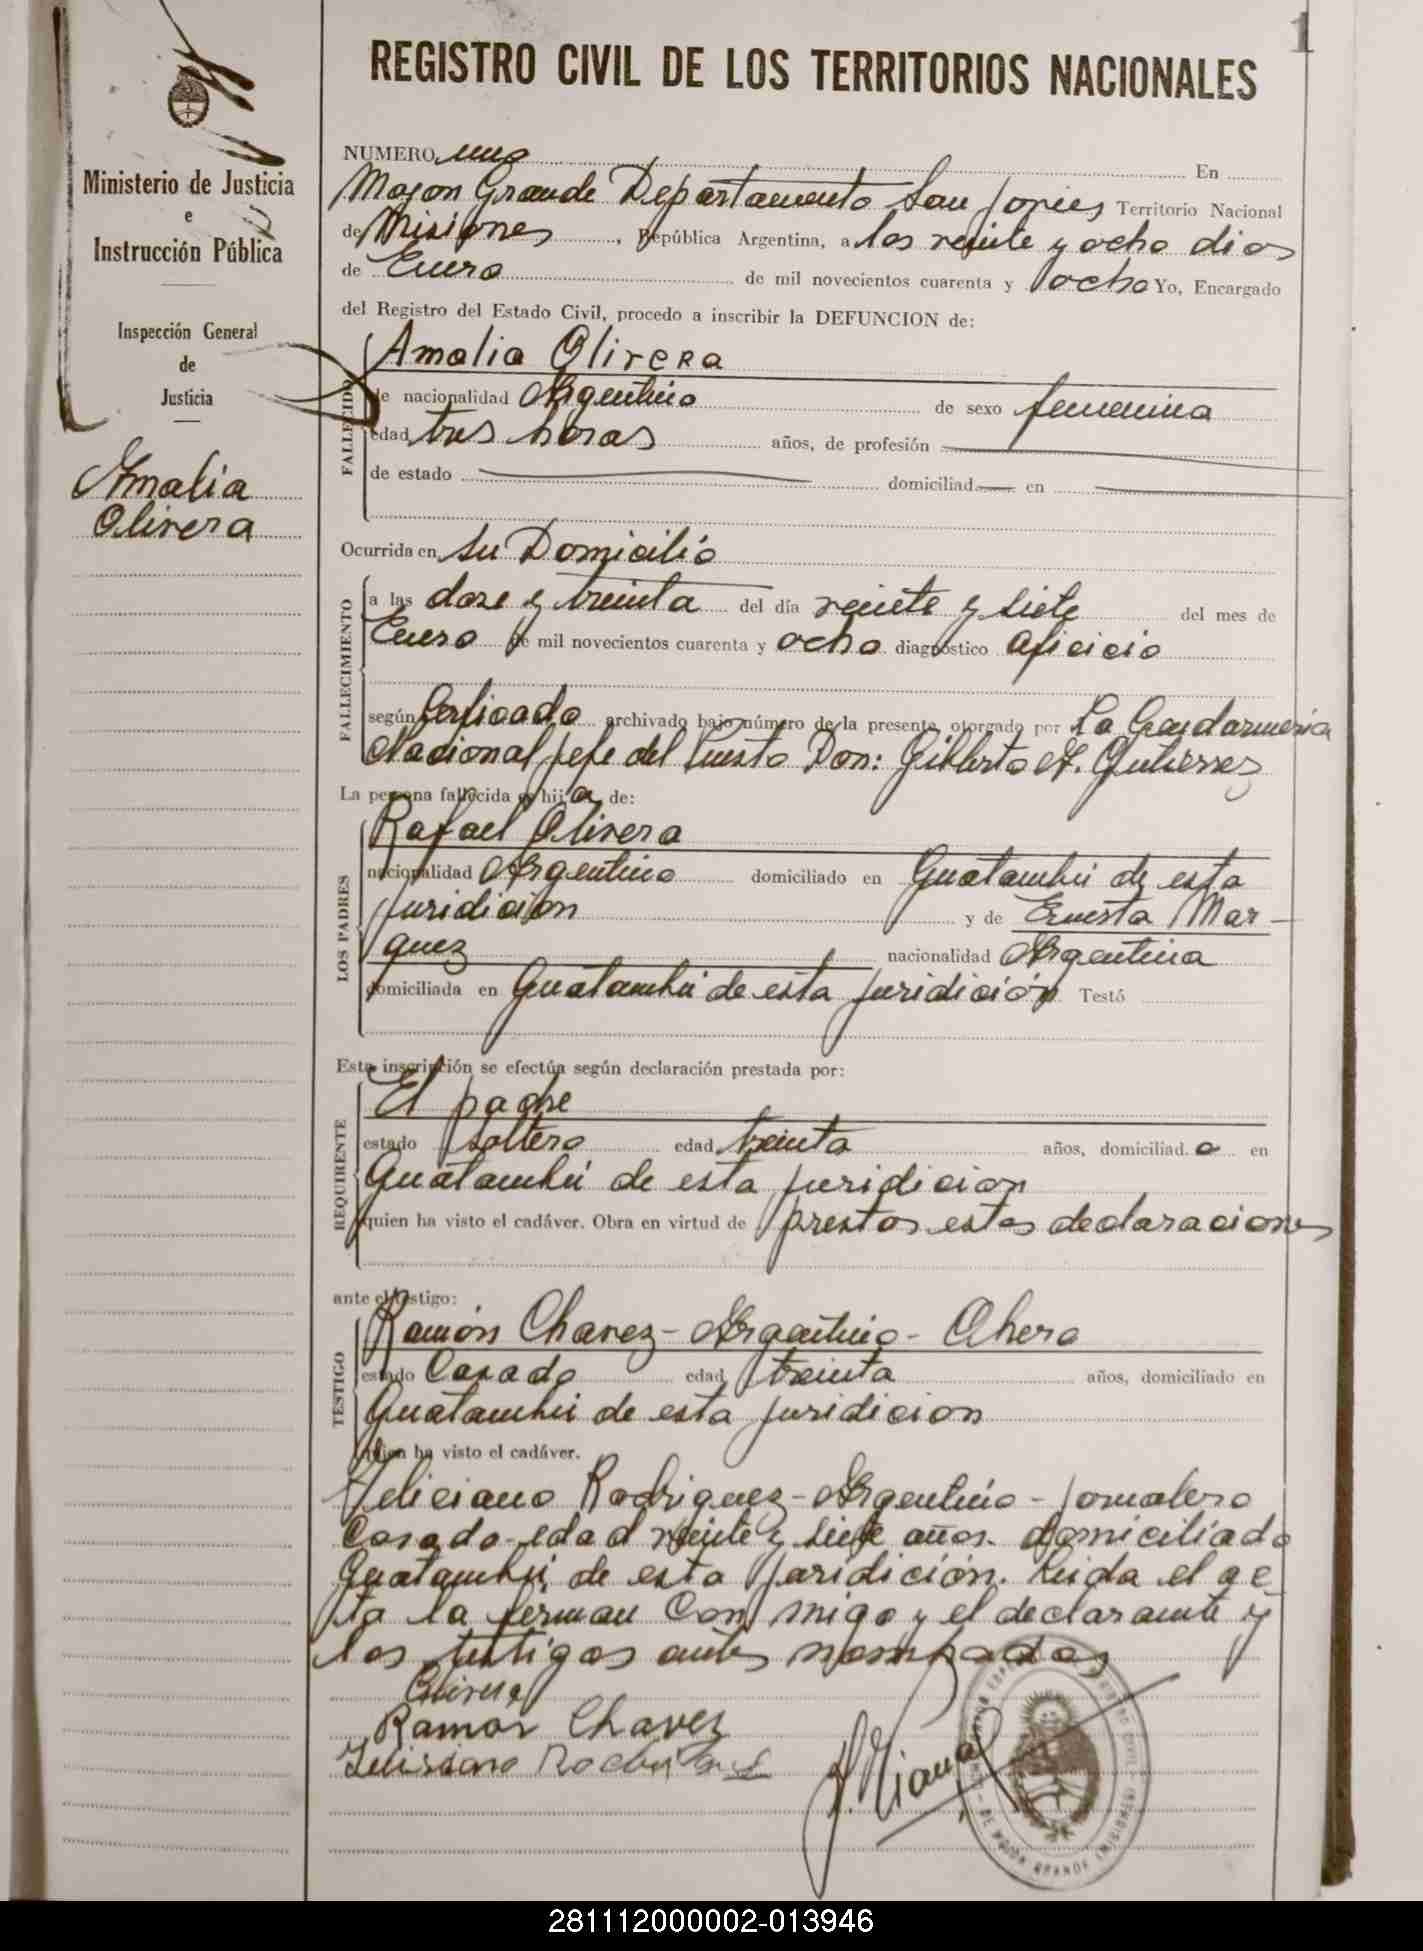 1
REGISTRO CIVIL DE LOS TERRITORIOS NACIONALES
Ministerio de Justicia
e
Instrucción Pública
Inspección General
de
Justicia
Amalia
Olivera
NUMERO uno En
Mojon Grande Departamento San Javier Territorio Nacional
de Misiones, República Argentina, a los veinte y ocho dias
de Enero de mil novecientos cuarenta y ocho Yo, Encargado
del Registro del Estado Civil, procedo a inscribir la DEFUNCION de:
FALLECIDO
Amalia Olivera
de nacionalidad Argentina de sexo femenina
edad tres horas años, de profesión
de estado domiciliad en
Ocurrida en su Domicilio
FALLECIMIENTO
a las doze y treinta del día veinte y siete del mes de
Enero de mil novecientos cuarenta y ocho diagnóstico aficicio
según Cerficado archivado bajo número de la presente, otorgado por La Gendarmeria
Nacional jefe del Puesto Don: Gilberto A. Gutierrez
La persona fallecida es hija de:
LOS PADRES
Rafael Olivera
nacionalidad Argentino domiciliado en Guatambú de esta
juridición y de Ernesta Mar-
quez nacionalidad Argentina
domiciliada en Guatambú de esta juridición Testó
Esta inscripción se efectúa según declaración prestada por:
REQUIRENTE
El padre
estado soltero edad treinta años, domiciliado en
Guatambú de esta juridicion
quien ha visto el cadáver. Obra en virtud de prestar estas declaraciones
ante el testigo:
TESTIGO
Ramón Chavez - Argentino - Obero
estado Casado edad treinta años, domiciliado en
Guatambú de esta juridicion
quien ha visto el cadáver.
Feliciano Rodriguez - Argentino - jornalero
Casado - edad veinte y siete años. domiciliado
Guatambú, de esta juridición. Leida el ac
ta la ferman Con migo y el declarante y
los testigos antes nombrados
Olivera
Ramón Chavez
DE MOJON GRANDE (MISIONES)
281112000002-013946